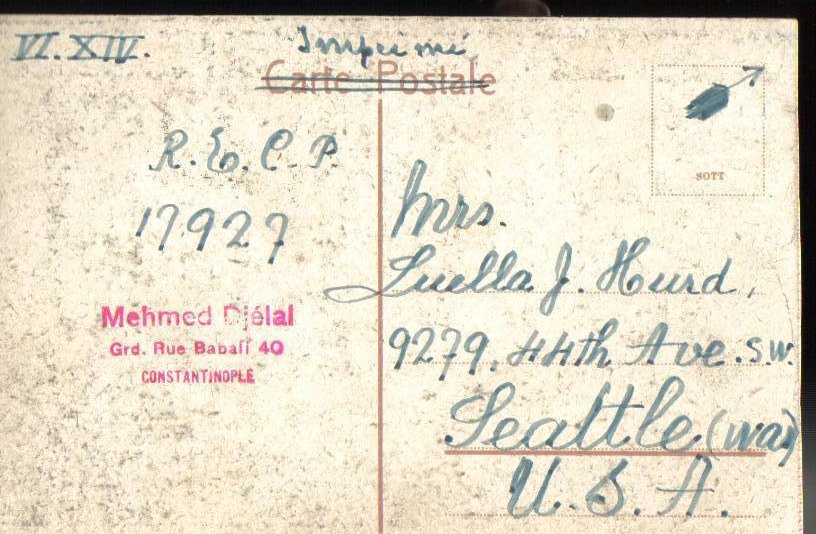 VI. XIV.
Imprimé
Carte Postale
SOTT
R. E. C. P.
17927
Mehmed Djélal
Grd. Rue Babali 40
CONSTANTINOPLE
Mrs.
Luella J. Hurd,
9279, 44th Ave. S.W.
Seattle (Wa)
U. S. A.